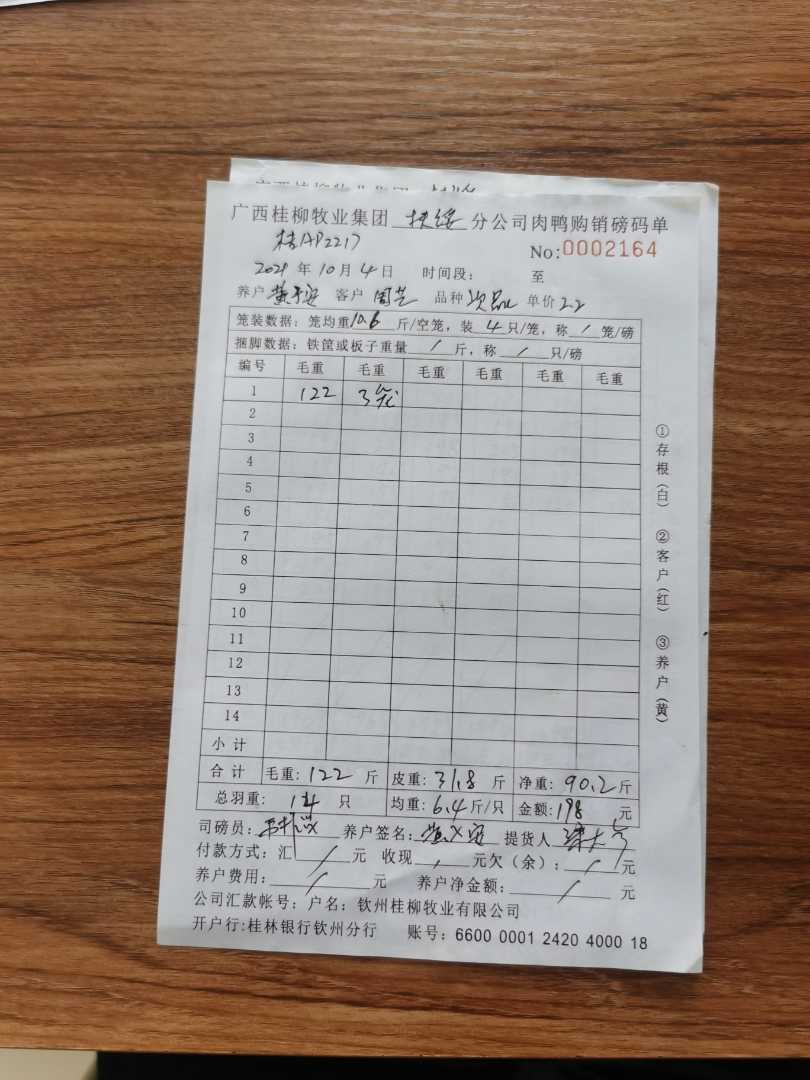 广西桂柳牧业集团 扶绥 分公司肉鸭购销磅码单
桂AP2217
No:0002164
2021 年 10 月 4 日 时间段: 至
养户 客户 周芝 品种 次品 单价 2.2
笼装数据: 笼均重 10.6 斤/空笼, 装 4 只/笼, 称 / 笼/磅
捆脚数据: 铁筐或板子重量 / 斤, 称 / 只/磅
编号 毛重 毛重 毛重 毛重 毛重 毛重
1 122 3笼
2
3
4
5
6
7
8
9
10
11
12
13
14
小计
合计 毛重: 122 斤 皮重: 31.8 斤 净重: 90.2 斤
总羽重: 14 只 均重: 6.4 斤/只 金额: 198 元
司磅员: 养户签名: 提货人
付款方式: 汇 / 元 收现 / 元欠(余): / 元
养户费用: / 元 养户净金额: / 元
公司汇款帐号: 户名: 钦州桂柳牧业有限公司
开户行:桂林银行钦州分行 账号: 6600 0001 2420 4000 18
①存根(白) ②客户(红) ③养户(黄)